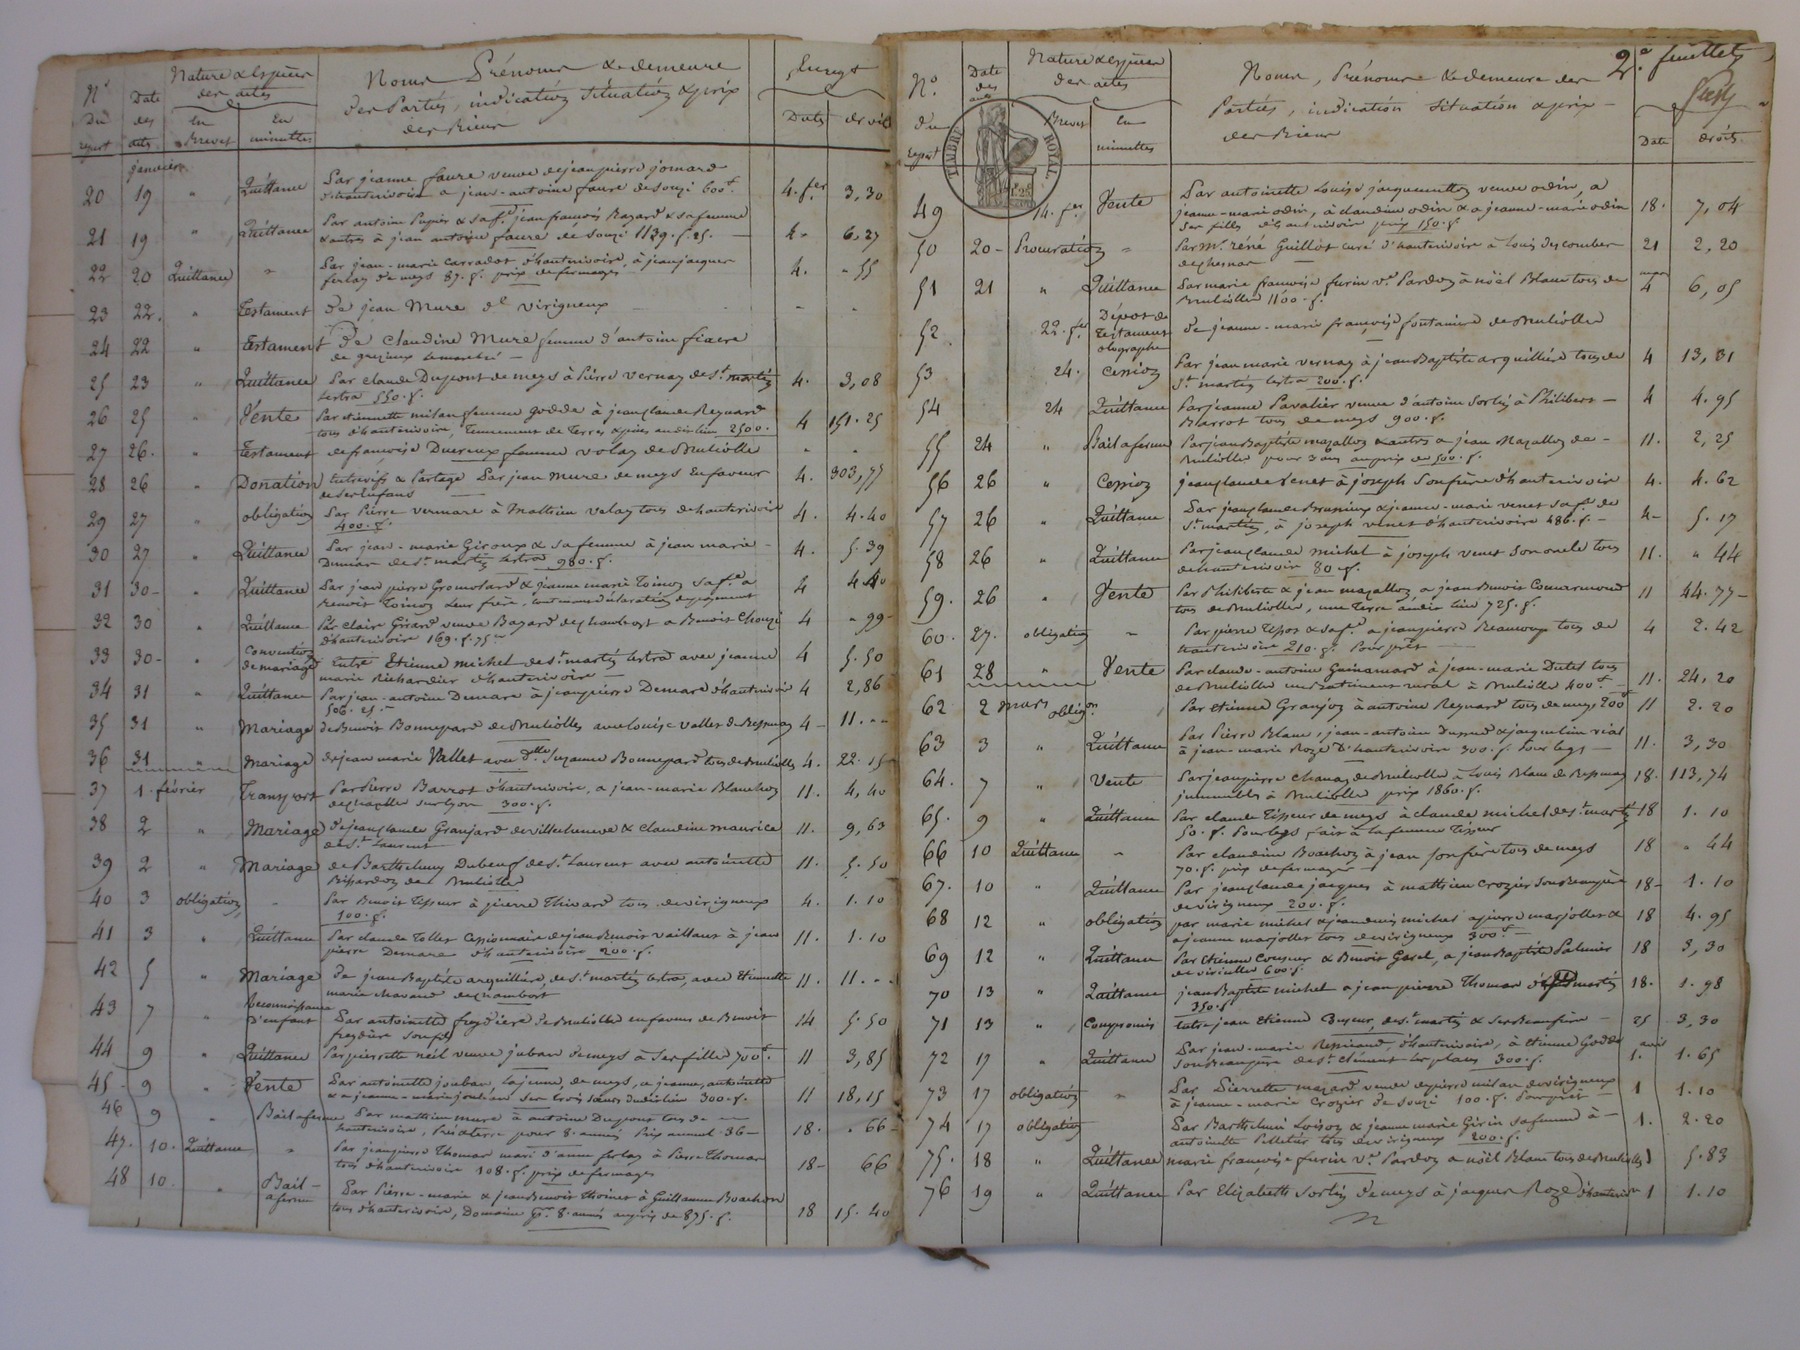 Nos Du repert
Date des actes
Nature & espèces des actes
En Brevet
En minuttes
Noms Prénoms & demeure
des Parties, indication situation & prix
des Biens
Enregt
Dates
droits
janvier
20 19 " Quittance Par jeanne faure veuve de jean pierre jomard
d'hauterivoire a jean-antoine faure de souzi 600 f. 4. fer 3,30
21 19 " Quittance Par antoine Pupier & sa fe jean françois Bazard & sa femme
& autres à jean antoine faure de souzi 1139. f. 25. 4 " 6.27
22 20 Quittance " Par jean-marie carradot d'hauterivoire, à jean jacques
ferlay de meys 87. f. prix de fermages 4. " 55
23 22. " Testament De jean Mure de virigneux - -
24 22 " Testament De Claudine Mure femme d'antoine fiacre
de grezieux le marché
25 23 " Quittance Par claude Dupont de meys à Pierre vernay de st martin
lestra 550. f. 4. 3,08
26 25 " Vente Par etiennette milan femme godde à jean claude Reynard
tous d'hauterivoire, Tennement de Terres & prés audit lieu 2500. 4 151.25
27 26. " Testament de françoise Ducreux femme volay de Brulliolle " "
28 26 " Donation Entrevifs & Partage Par jean Mure de meys En faveur
de ses Enfans 4. 303,75
29 27 " obligation Par Pierre vermare à Mathieu valay tous de hauterivoire
400. f. 4. 4.40
30 27 " Quittance Par jean-marie Giroux & sa femme à jean marie
de st martin lestra 980. f. 4. 5.39
31 30 " Quittance Par jean pierre & jeanne marie Toinon sa fe a
Benoit Toinon Leur frère, 4 4.40
32 30 " Quittance Par Claire Girard veuve Bazard de chambost a Benoit
d'hauterivoire 169. f. 75 4 " 99
33 30 " Convention de mariage Entre Etienne michel de st martin lestra avec jeanne
marie Richardier d'hauterivoire 4 5.50
34 31 " Quittance Par jean-antoine Demare à jean pierre Demare d'hauterivoire
506. 25. 4 2,86
35 31 " Mariage de Benoit Bonnepard de Brulliolles avec louise vallet de Bessenay 4 11. "
36 31 " Mariage de jean marie Vallet avec Dlle Suzanne Bonnepard tous de Brulliolles 4. 22.15
37 1. février Transport Par Pierre Barrot d'hauterivoire, a jean-marie Blanchon
300. f. 11. 4,40
38 2 " Mariage de jean claude Granjard de villecheneve & claudine maurice
de st Laurent 11. 9,63
39 2 " Mariage de Barthelemy Dubeuf de st Laurent avec antoinette
Bissardon de Brulliolle 11. 5.50
40 3 obligation " Par Benoit Tisseur à pierre Thivard tous de virigneux
100. f. 4. 1.10
41 3 " Quittance Par claude Tollet Cessionnaire de jean Benoit vaillant à jean
pierre Demare d'hauterivoire 200. f. 11. 1.10
42 5 " Mariage De jean Baptiste arquillière, de st martin lestra, avec Etiennette
marie de chambost 11. 11. "
43 7 " Reconnoissance d'enfant Par antoinette freydiere de Brulliolle en faveur de Benoit
freydière son fils 14 5.50
44 9 " Quittance Par pierrette neël veuve juban de meys à ses filles 700 f. 11 3,85
45 9 " Vente Par antoinette jouban, lajeune, de meys, a jeanne, antoinette
& a jeanne-marie jouban ses trois sœurs dudit lieu 300. f. 11 18,15
46 9 " Bail a ferme Par mathieu mure à antoine Dupont tous de
hauterivoire, Pré & terre pour 8. années Prix annuel 36 18. " 66
47. 10. Quittance " Par jean pierre Thomas mari d'anne ferlay à Pierre Thomas
tous d'hauterivoire 108. f. prix de fermages 18 66
48 10. " Bail a ferme Par Pierre-marie & jean Benoit Thoinet à Guillaume Boachon
tous d'hauterivoire, Domaine pr. 8. années au prix de 875. f. 18 15.40
2e feuillet
No. du repert
Date des actes
Nature & espèces des actes
Brevet
En minuttes
Noms, Prénoms & demeure des
Parties, indication situation & prix
des Biens
Date
droits
TIMBRE ROYAL
49 14. fer Vente Par antoinette Louise jacquemetton veuve odin, a
jeanne-marie odin, à claudine odin & a jeanne-marie odin
ses filles d'hauterivoire prix 150. f. 18. 7,04
50 20 Procuration " Par Mr. réné Guillot curé d'hauterivoire à Louis
21 2,20
51 21 " Quittance Par marie françoise furin ve Pardon à noël Blanc tous de
Brulliolle 1100. f. mars 4 6,05
52 22. fer Dépot de Testament olographe de jeanne-marie françoise fontaine de Brulliolle
53 24. Cession Par jean marie vernay à jean Baptiste arquillière tous de
St. martin lestra 200. f. 4 13,31
54 24 Quittance Par jeanne Pavalier veuve d'antoine Sorlin à Philibert
Blarrot tous de meys 900. f. 4 4.95
55 24 " Bail a ferme Par jean Baptiste mazallon & autres a jean Mazallon de
Brulliolle pour 3 ans au prix de 500. f. 11. 2,25
56 26 " Cession jean claude Venet à joseph Son frère d'hauterivoire 4. 4.62
57 26 " Quittance Par jean claude Brunieux & jeanne-marie venet sa fe de
St. martin, à joseph venet d'hauterivoire 486. f. 4 5.17
58 26 " Quittance Par jean claude michel à joseph venet son oncle tous
de hauterivoire 80. f. 11. " 44
59. 26 " Vente Par Philiberte & jean mazallon a jean Benoit Commarmond
tous de Brulliolle, une Terre audit lieu 725. f. 11 44.77
60. 27. obligation " Par pierre & sa fe a jean pierre Beaucoup tous de
hauterivoire 210. f. Pour prêt 4 2.42
61 28 " Vente Par claude-antoine Guinamard à jean-marie Dutel tous
de Brulliolle un Batiment rural à Brulliolle 400 f. 11. 24,20
62 2 mars obligon. Par Etienne Granjon à antoine Reynard tous de meys 200 f. 11 2.20
63 3 " Quittance Par Pierre Blanc, jean-antoine & jacqueline rial
à jean-marie Roze D'hauterivoire 300. f. Pour legs 11. 3,30
64. 7 " Vente Par jean pierre chanay de Brulliolle à Louis Blanc de Bessenay
immeubles à Brulliolle prix 1860. f. 18. 113,74
65. 9 " Quittance Par claude Tisseur de meys à claude michel de st. martin
50. f. Pour legs fait à la femme Tisseur 18 1.10
66 10 Quittance " Par claudine Boachon à jean son frère tous de meys
70. f. prix de fermages 18 " 44
67. 10 " Quittance Par jean claude jacques à mathieu crozier son Beaupère
de virigneux 200. f. 18 1.10
68 12 " obligation par marie michel & jean denis michel a pierre marjollet &
a jeanne marjollet tous de virigneux 900 f. 18 4.95
69 12 " Quittance Par Etienne Couzeur & Benoit Garel, a jean Baptiste Palmier
de viricelle 600 f. 18 3,30
70 13 " Quittance jean Baptiste michel a jean pierre Thomas de St martin
350. f. 18. 1.98
71 13 " Compromis Entre jean Etienne de st. martin & ses Beaufrère 25 3,30
72 17 " Quittance Par jean-marie d'hauterivoire, à Etienne Godde
Son Beaupère de st. clément les places 300. f. avril 1. 1.65
73 17 obligation " Par Pierrette mazard veuve de pierre milan de virigneux
à jeanne-marie Crozier de souzi 100. f. Pour prêt 1 1.10
74 17 obligation Par Barthelemi Loison & jeanne marie Girin sa femme à
antoinette Pelletier tous de virigneux 200. f. 1. 2.20
75. 18 " Quittance marie françoise furin ve. Pardon a noël Blanc tous de Brulliolle 1 5.83
76 19 " Quittance Par Elizabeth Sorlin de meys à jacques Roze d'hauterivoire 1 1.10